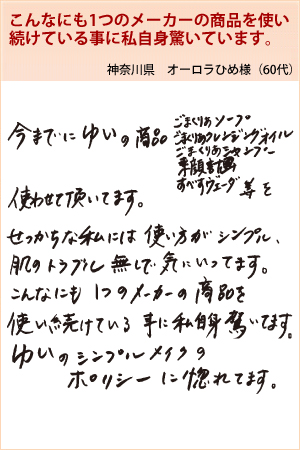 こんなにも1つのメーカーの商品を使い
続けている事に私自身驚いています。
神奈川県　オーロラひめ様（60代）
今までに ゆいの商品
ごまくりあソープ
ごまくりあクレンジングオイル
ごまくりあシャンプー
素顔計画
すべすべヴェーダ 等を
使わせて頂いてます。
せっかちな私には 使い方がシンプル、
肌のトラブル無しで気にいってます。
こんなにも 1つのメーカーの商品を
使い続けている 事に私自身 驚いてます。
ゆいのシンプルメイクの
ポリシーに惚れてます。